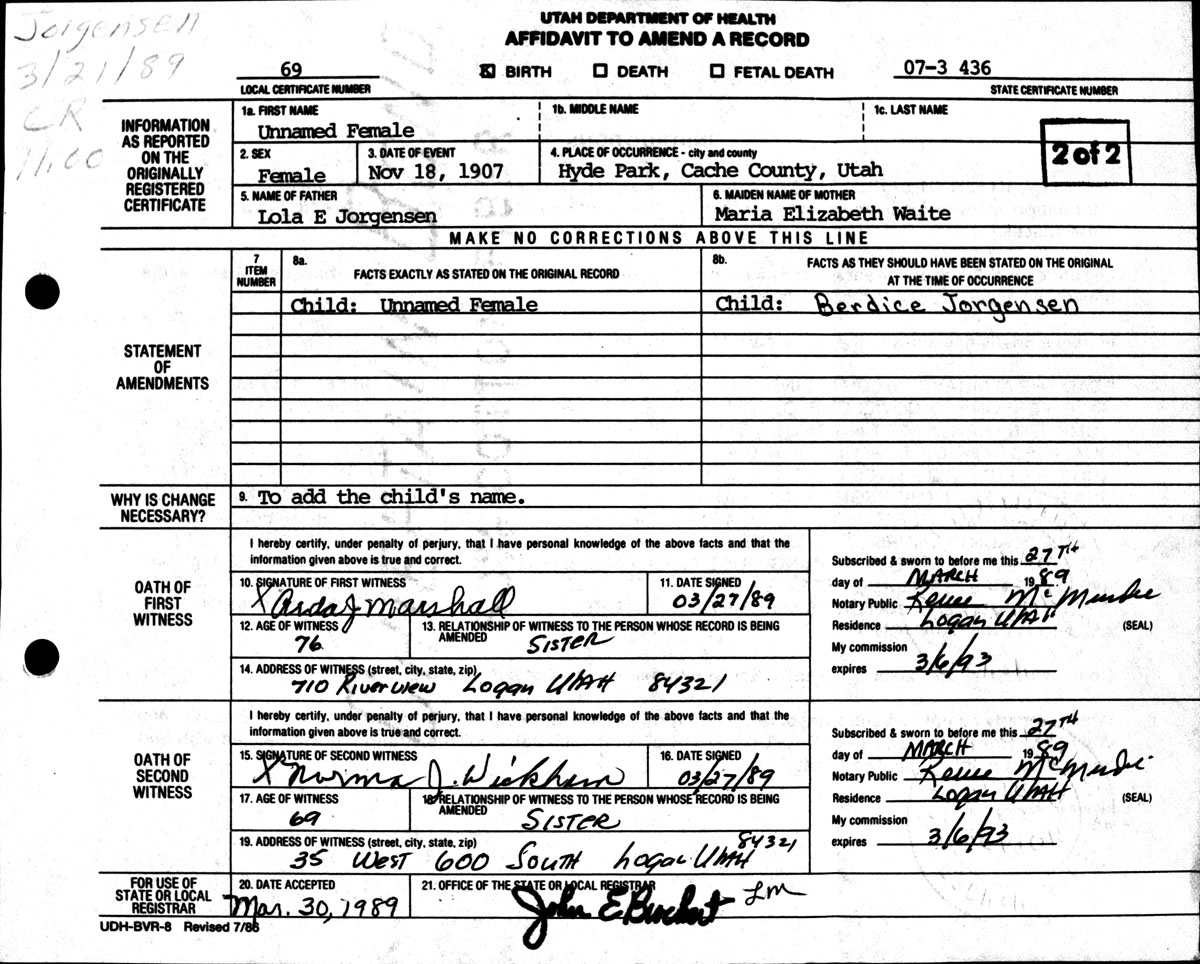 Jorgensen
3/21/89
CR
11.00
UTAH DEPARTMENT OF HEALTH
AFFIDAVIT TO AMEND A RECORD
69 ☒ BIRTH ☐ DEATH ☐ FETAL DEATH 07-3 436
LOCAL CERTIFICATE NUMBER STATE CERTIFICATE NUMBER
INFORMATION AS REPORTED ON THE ORIGINALLY REGISTERED CERTIFICATE
1a. FIRST NAME 1b. MIDDLE NAME 1c. LAST NAME
Unnamed Female
2. SEX 3. DATE OF EVENT 4. PLACE OF OCCURRENCE - city and county
Female Nov 18, 1907 Hyde Park, Cache County, Utah
2 of 2
5. NAME OF FATHER 6. MAIDEN NAME OF MOTHER
Lola E Jorgensen Maria Elizabeth Waite
MAKE NO CORRECTIONS ABOVE THIS LINE
STATEMENT OF AMENDMENTS
7 ITEM NUMBER
8a. FACTS EXACTLY AS STATED ON THE ORIGINAL RECORD
8b. FACTS AS THEY SHOULD HAVE BEEN STATED ON THE ORIGINAL
AT THE TIME OF OCCURRENCE
Child: Unnamed Female Child: Berdice Jorgensen
WHY IS CHANGE NECESSARY?
9. To add the child's name.
OATH OF FIRST WITNESS
I hereby certify, under penalty of perjury, that I have personal knowledge of the above facts and that the
information given above is true and correct.
10. SIGNATURE OF FIRST WITNESS 11. DATE SIGNED
X Arda J Marshall 03/27/89
12. AGE OF WITNESS 13. RELATIONSHIP OF WITNESS TO THE PERSON WHOSE RECORD IS BEING AMENDED
76 SISTER
14. ADDRESS OF WITNESS (street, city, state, zip)
710 Riverview Logan Utah 84321
Subscribed & sworn to before me this 27TH
day of MARCH 1989
Notary Public Renee McMurdie
Residence Logan Utah (SEAL)
My commission
expires 3/6/93
OATH OF SECOND WITNESS
I hereby certify, under penalty of perjury, that I have personal knowledge of the above facts and that the
information given above is true and correct.
15. SIGNATURE OF SECOND WITNESS 16. DATE SIGNED
X Norma J. Wickham 03/27/89
17. AGE OF WITNESS 18. RELATIONSHIP OF WITNESS TO THE PERSON WHOSE RECORD IS BEING AMENDED
69 SISTER
19. ADDRESS OF WITNESS (street, city, state, zip)
35 West 600 South Logan Utah 84321
Subscribed & sworn to before me this 27TH
day of MARCH 1989
Notary Public Renee McMurdie
Residence Logan Utah (SEAL)
My commission
expires 3/6/93
FOR USE OF STATE OR LOCAL REGISTRAR
20. DATE ACCEPTED 21. OFFICE OF THE STATE OR LOCAL REGISTRAR
Mar. 30, 1989 John E Brockert Lm
UDH-BVR-8 Revised 7/86